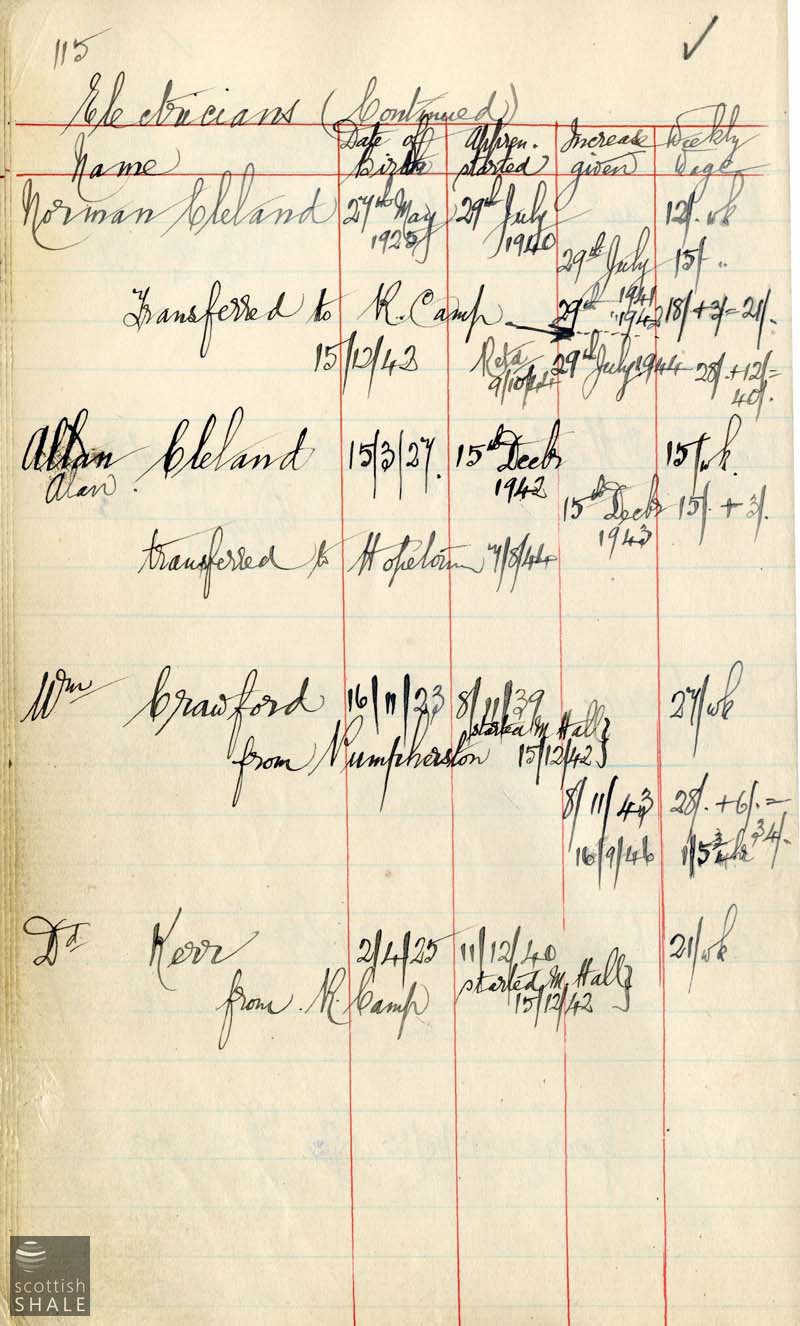 115 ✓
Electricians (Continued)
Name Date of Birth Appren. started Increase given Weekly Wage
Norman Cleland 27th May 1925 29th July 1940 12/. wk
29th July 1941 15/- "
Transferred to R. Camp 29th " 1942 18/ + 3/- = 21/-
15/12/42 Retd 9/10/44 29th July 1944 28/. + 12/. = 40/.
Allan Cleland 15/3/27. 15th Decbr 1942 15/ wk.
Alan.
15th Decbr 1943 15/. + 3/.
transferred to Hopetoun 7/8/44
Wm Crawford 16/11/23 8/11/39 27/ wk
from Pumpherston started M. Hall} 15/12/42}
8/11/43 28/. + 6/. = 34/.
16/9/46 1/5 3/4 hr
Dd Kerr 2/4/25 11/12/40 21/ wk
from R. Camp started M. Hall} 15/12/42}
scottish
SHALE